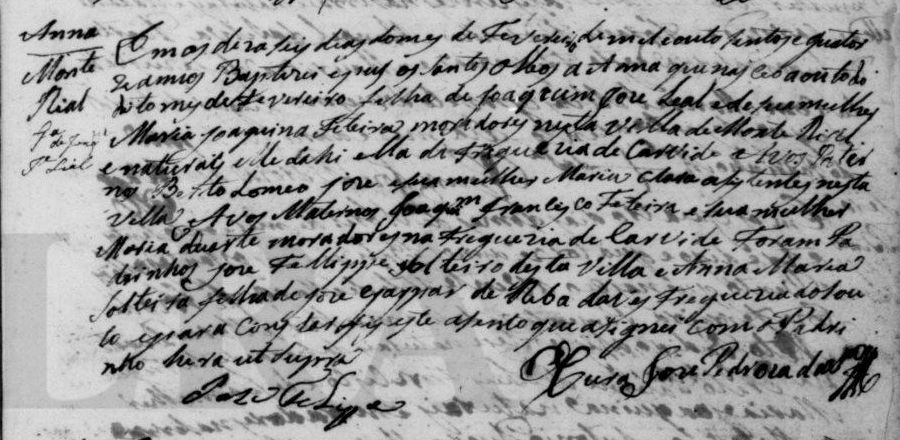 Anna
Monte
Rial
fª de Joaqᵐ
Jᵉ Lial
Em os dezaseis dias do mes de Fevereiro de mil e outo sentos e quator
ze annos Baptizei e pus os santos olleos a Anna que nasceo a outo di
do mes de Fevereiro filha de Joaquim Jose Leal e de sua mulher
Maria Joaquina Feteira moradores nesta Villa de Monte Rial
e natural elle dahi ella da Freguezia de Carvide e Avos Pater
nos Bertolomeo Jose e sua mulher Maria Clara asistentes nesta
Villa e Avos Maternos Joaqᵐ Francisco Feteira e sua mulher
Maria Duarte moradores na Freguezia de Carvide Foram Pa
drinhos Jose Fellippe solteiro desta Villa e Anna Maria
solteira filha de Jose Gaspar de Riba d'aves Freguezia do Sou
to e para constar fis este asento que asignei com o Padri
nho hera ut supra
O Cura Jose Pedro
Joze Felippe